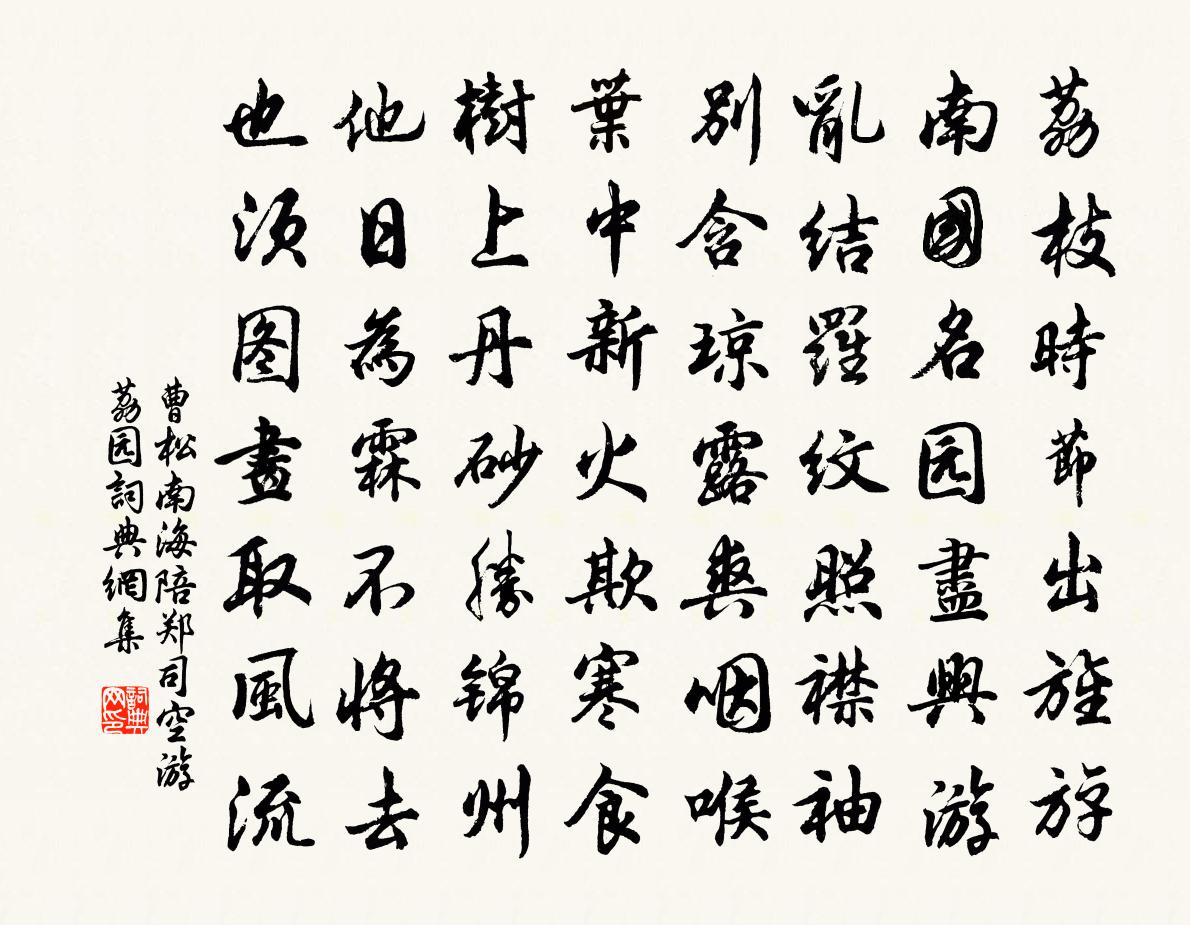 荔枝時節出旌斿
南國名园盡興游
亂結羅紋照襟袖
別含琼露爽咽喉
葉中新火欺寒食
樹上丹砂勝锦州
他日為霖不將去
也须图畫取風流
曹松南海陪郑司空游
荔园詞典網集
詞典网印